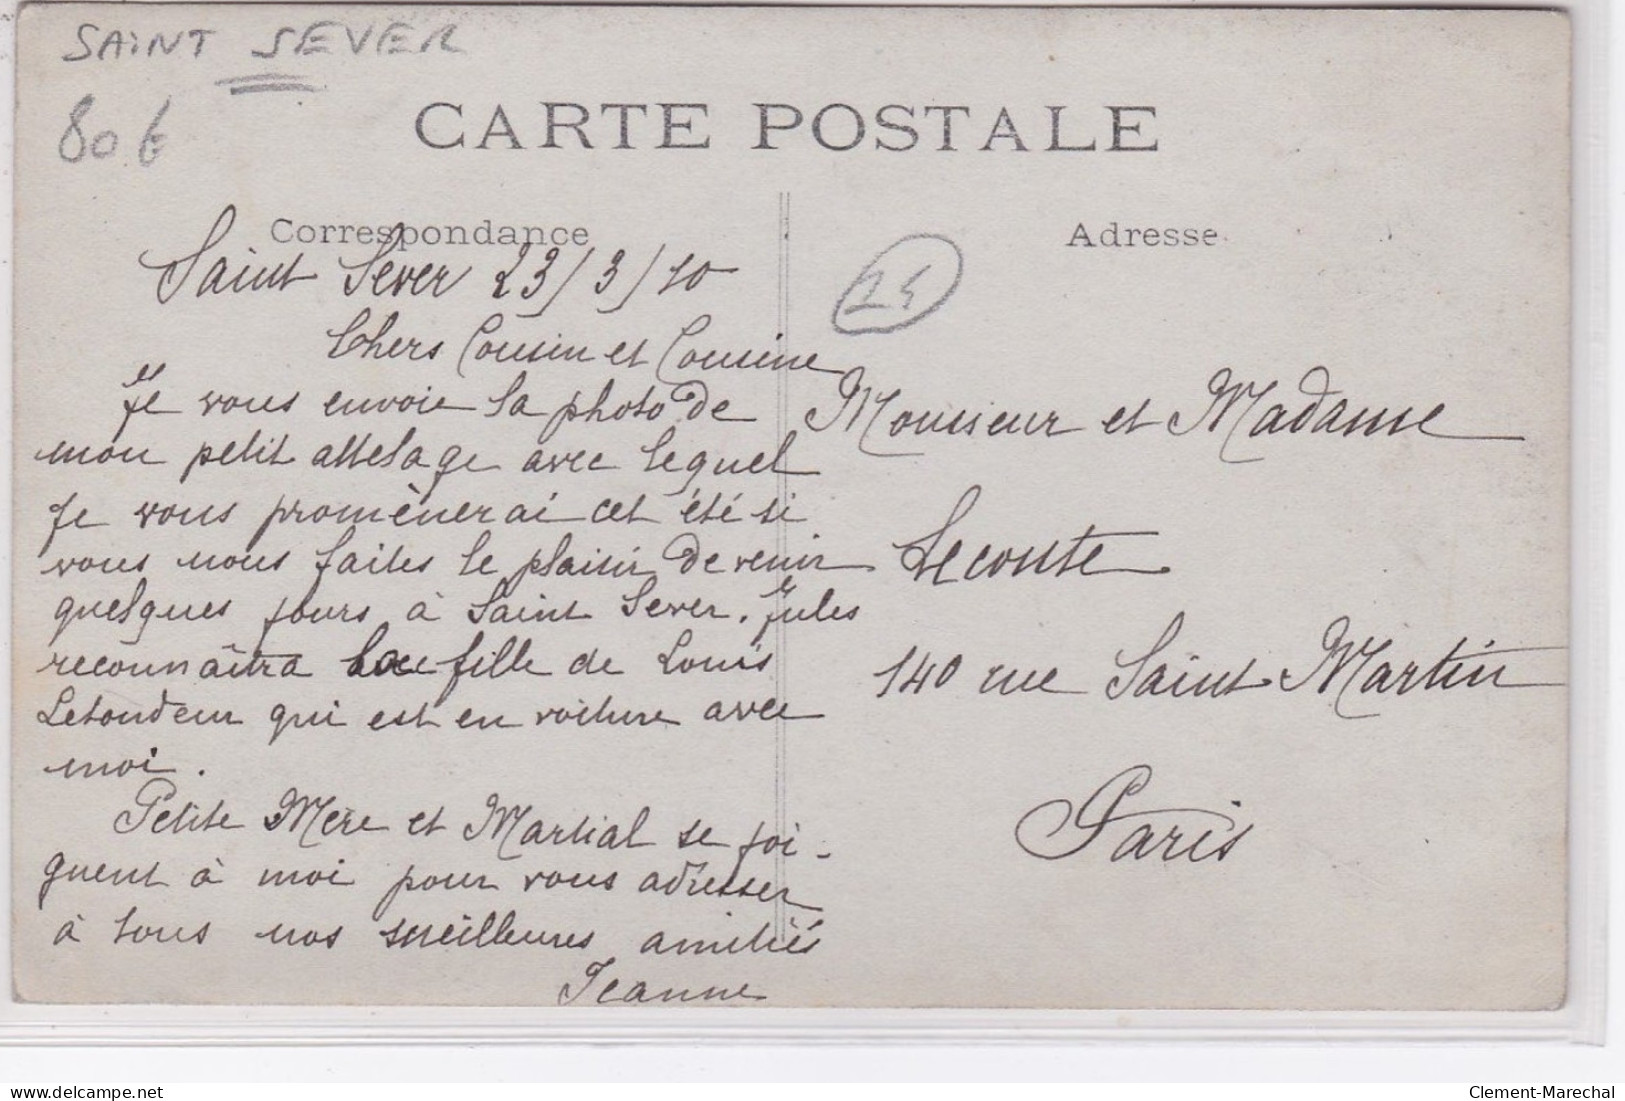 SAINT SEVER
80 €
CARTE POSTALE
Correspondance
Adresse
Saint Sever 23/3/10
Chers Cousin et Cousine
Je vous envoie la photo de
mon petit attelage avec lequel
je vous promènerai cet été si
vous nous faites le plaisir de venir
quelques jours à Saint Sever. Jules
reconnaîtra la fille de Louis
Letondeur qui est en voiture avec
moi.
Petite Mère et Martial se joi-
gnent à moi pour vous adresser
à tous nos meilleures amitiés
Jeanne
Monsieur et Madame
Leconte
140 rue Saint Martin
Paris
delcampe.net
Clement-Marechal